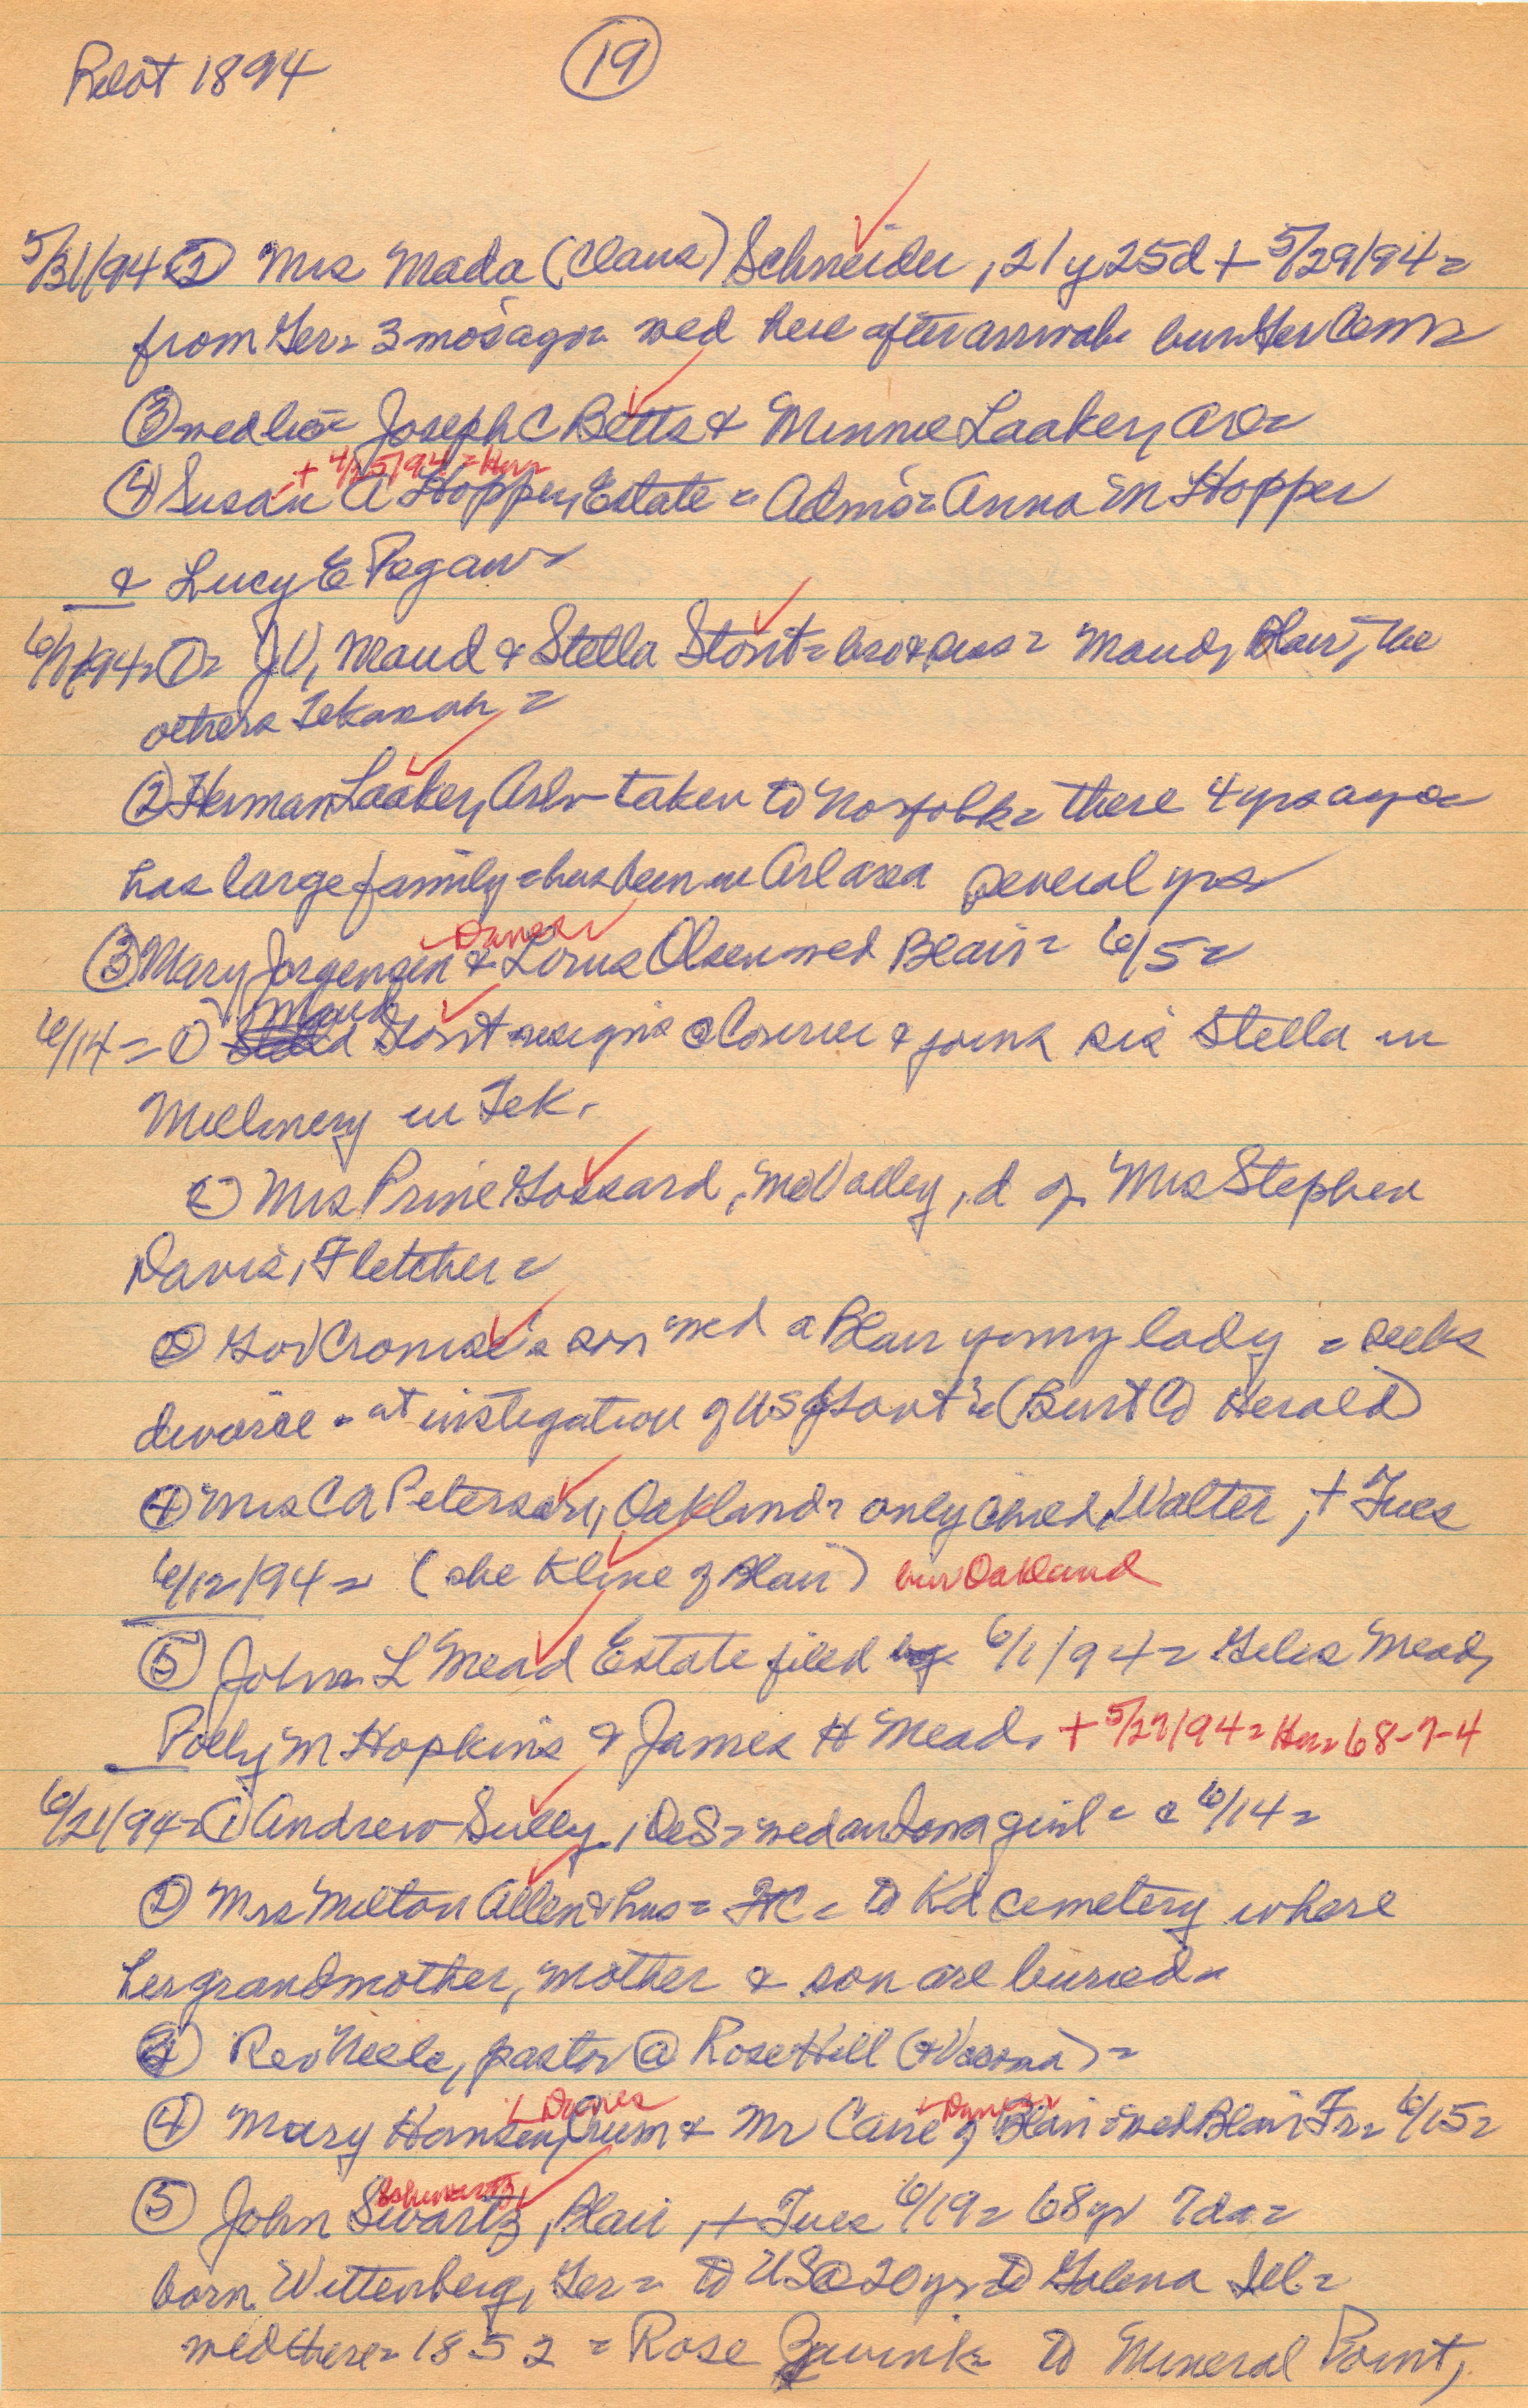 Pilot 1894 (19)
5/31/94 (2) Mrs Mada (Claus) Schneider, 21y 25d + 5/29/94=
from Ger= 3 mos ago= wed here after arrival= bur Ger Cem=
(3) wed lic= Joseph C Betts & Minnie Laaker, Arl=
+ 4/25/94= Her=
(4) Susan A Hopper, Estate= Admrs= Anna M Hopper
& Lucy E Pegau=
6/7/94= (1)= JV, Maud & Stella Stork= bro & sis= Maud, Blair, the
others Tekamah=
(2) Herman Laaker, Arl= taken to Norfolk= there 4 yrs ago=
has large family= has been in Arl area several yrs=
Danes
(3) Mary Jorgensen & Lorus Olsen wed Blair= 6/5=
Maud
6/14= (1) Stork resigns @ Courier & joins sis Stella in
Millinery in Tek.
(2) Mrs Prine Gossard, Mo Valley, d of Mrs Stephen
Davis, Fletcher=
(3) Gov Crounse's son wed a Blair young lady = seeks
divorce = at instigation of US Govt= (Burt Co Herald)
(4) Mrs CA Peterson, Oakland= only child, Walter, + Tues
6/12/94= (she Kline of Blair) bur Oakland
(5) John L Mead Estate filed 6/1/94= Giles Mead,
Polly M Hopkins & James H Mead. + 5/27/94= Her= 68-7-4
6/21/94= (1) Andrew Sully, DeS= wed an Iowa girl= @ 6/14=
(2) Mrs Milton Allen & hus= FtC= to Kd cemetery where
her grandmother, mother & son are buried=
(3) Rev Neele, pastor @ Rose Hill (& Vacoma)=
Danes Danes
(4) Mary Hansen, Orum & Mr Cane of Blair= wed Blair Fr= 6/15=
Schwartz
(5) John Swartz, Blair, + Tues 6/19= 68yr 7da=
born Wittenberg, Ger= to US @ 20yrs= to Galena Ill=
wed there= 1852 = Rose to Mineral Point,